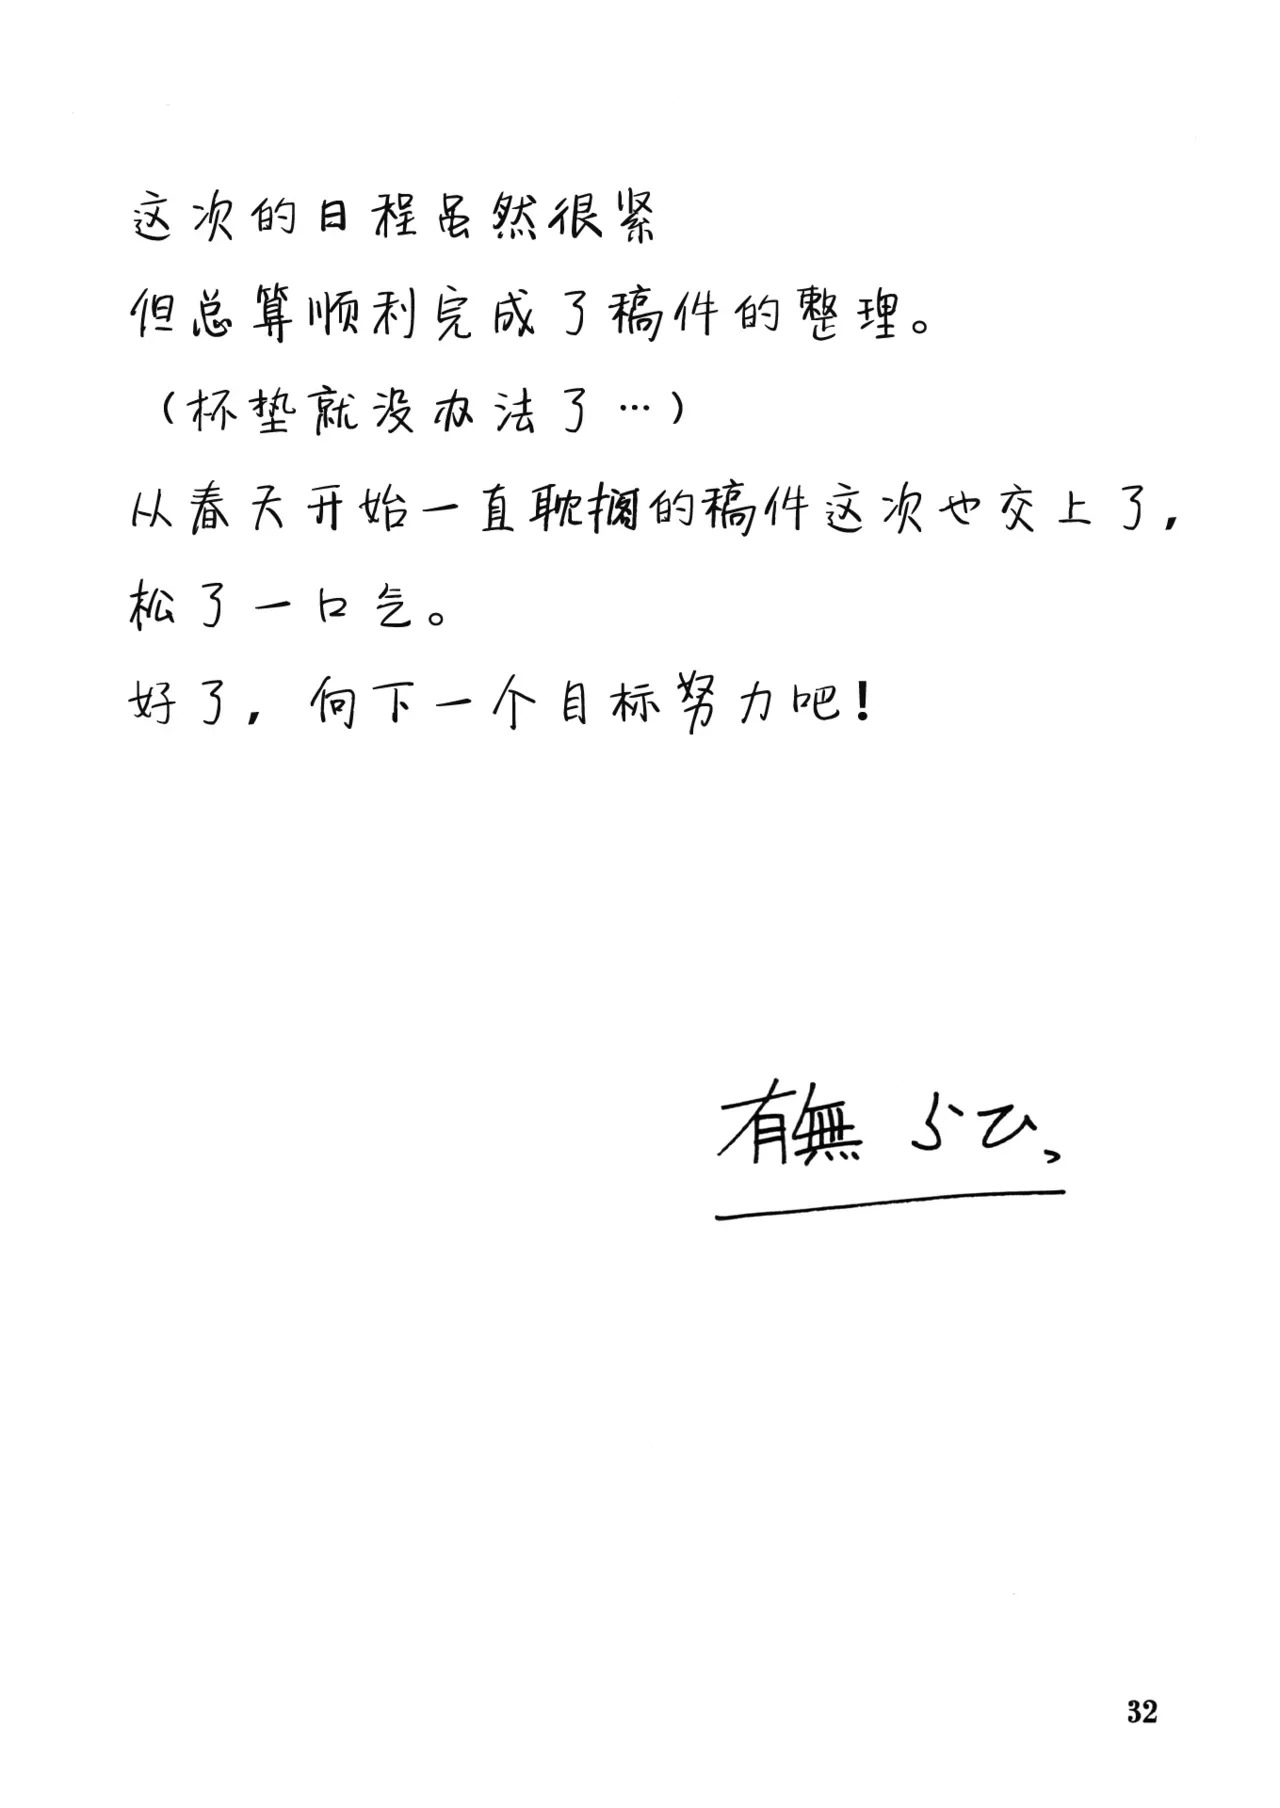 这次的日程虽然很紧
但总算顺利完成了稿件的整理。
（杯垫就没办法了…）
从春天开始一直耽搁的稿件这次也交上了,
松了一口气。
好了, 向下一个目标努力吧!
有無 らひ、
32